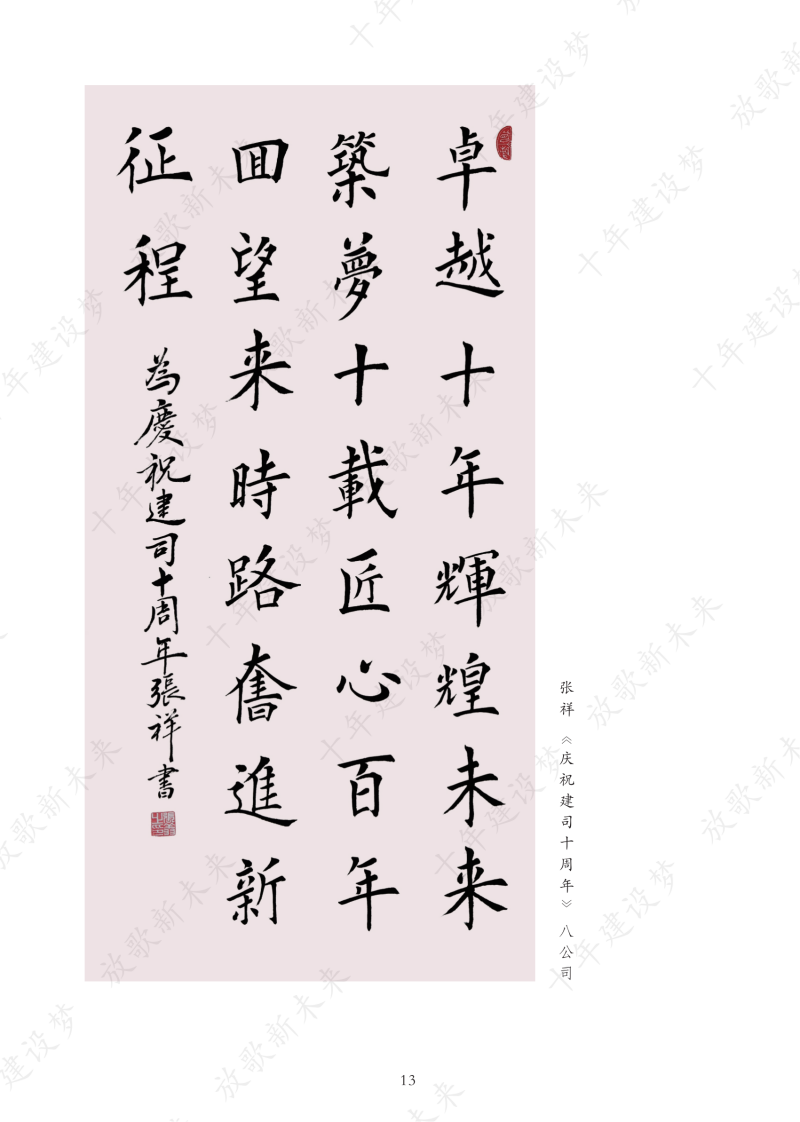 卓越十年輝煌未来
築夢十載匠心百年
囬望来時路奮進新
征程
為慶祝建司十周年張祥書
张祥《庆祝建司十周年》八公司
13
十年建设梦 放歌新未来